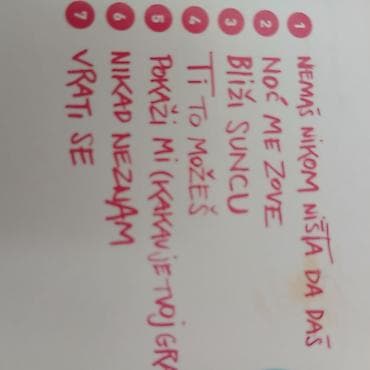 1 NEMAŠ NIKOM NIŠTA DA DAŠ
2 NOĆ ME ZOVE
3 BLIŽI SUNCU
4 TI TO MOŽEŠ
5 POKAŽI MI (KAKAV JE TVOJ GRA
6 NIKAD NEZNAM
7 VRATI SE